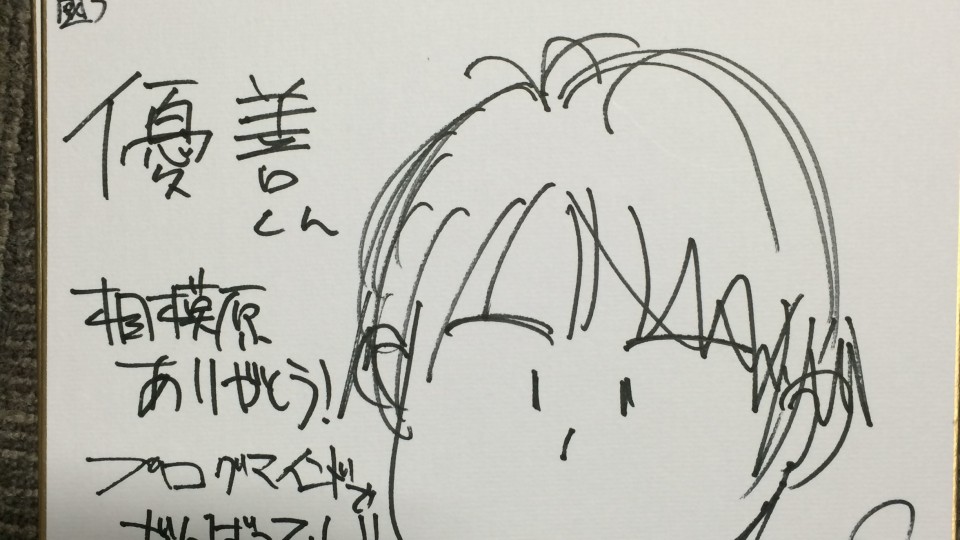 優善
くん
相模原
ありがとう!
プログマインドで
がんばって!!